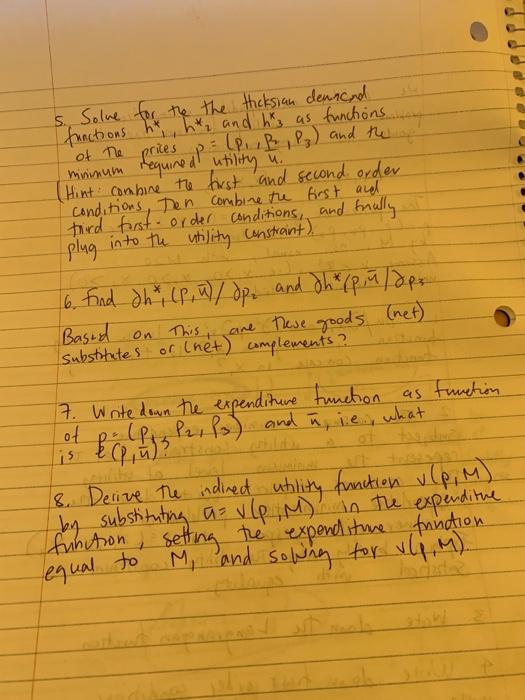 5. Solve for the the Hicksian demand
functions h*₁, h*₂ and h*₃ as functions
of the prices p = (p₁, p₂, p₃) and the
minimum required utility ū.
(Hint: combine the first and second order
conditions, then combine the first and
third first-order conditions, and finally
plug into the utility constraint).
6. Find ∂h*₁(p,ū)/∂p₂ and ∂h*(p,ū/∂p₃
Based on this, are these goods (net)
substitutes or (net) complements?
7. Write down the expenditure function as function
of p = (p₁, p₂, p₃) and ū, i.e., what
is E(p,ū)?
8. Derive the indirect utility function v(p,M)
by substituting ū = v(p,M) in the expenditure
function, setting the expenditure function
equal to M, and solving for v(p,M).